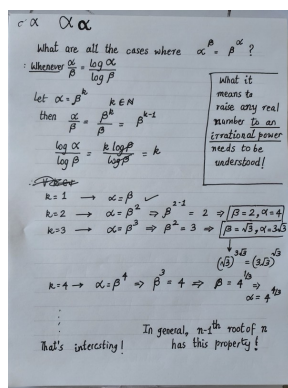 α α α
What are all the cases where α^β = β^α ?
: Whenever α/β = log α / log β
Let α = β^k k ∈ N
then α/β = β^k/β = β^(k-1)
log α / log β = k log β / log β = k
What it
means to
raise any real
number to an
irrational power
needs to be
understood!
k=1 → α=β ✓
k=2 → α=β^2 ⇒ β^(2-1) = 2 ⇒ β=2, α=4
k=3 → α=β^3 ⇒ β^2 = 3 ⇒ β=√3, α=3√3
(√3)^(3√3) = (3√3)^√3
k=4 → α=β^4 ⇒ β^3 = 4 ⇒ β = 4^(1/3) ⇒
α = 4^(4/3)
In general, n-1^th root of n
has this property!
That's interesting!